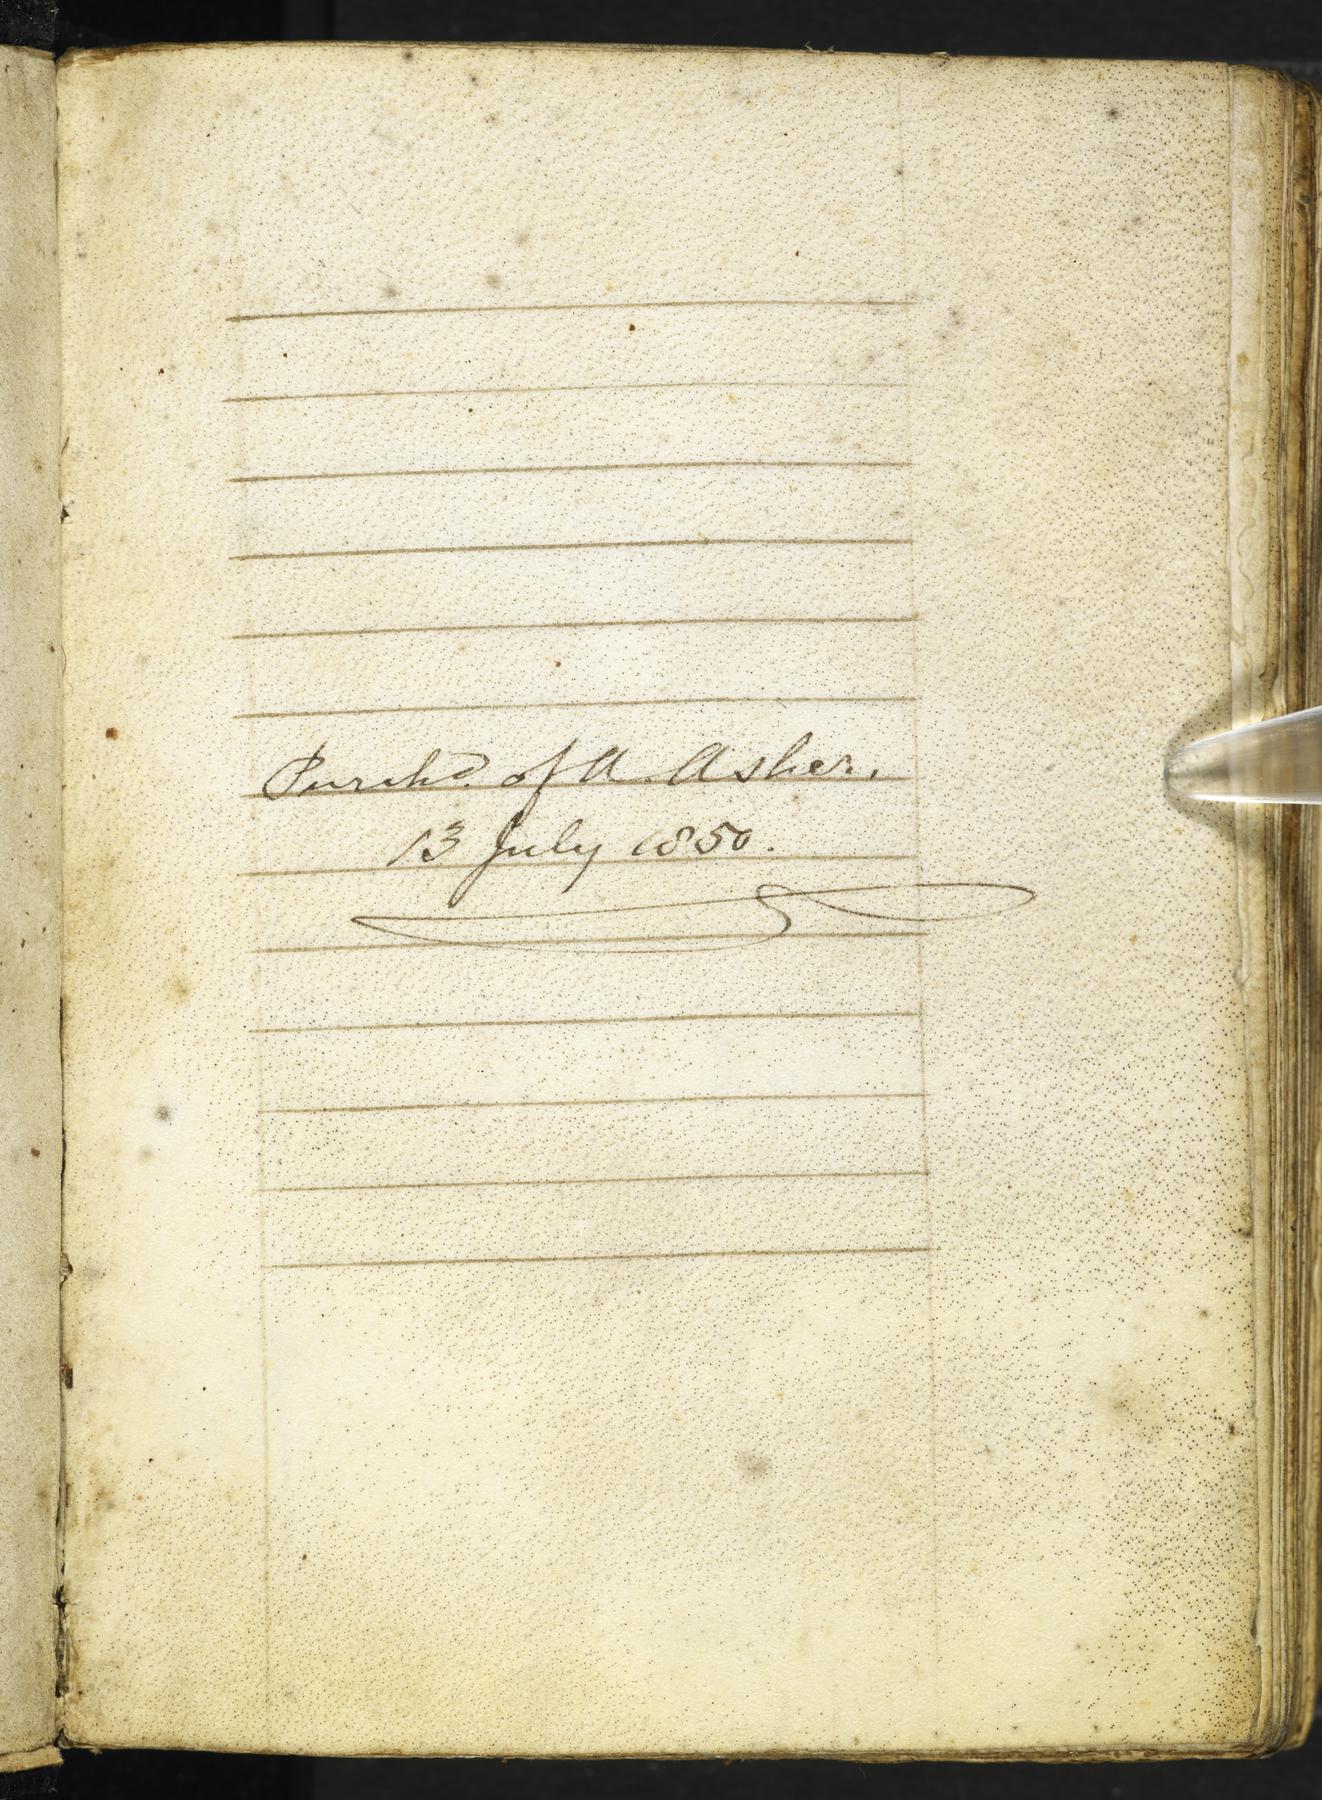 Purchd. of A. Asher.
13 July 1850.